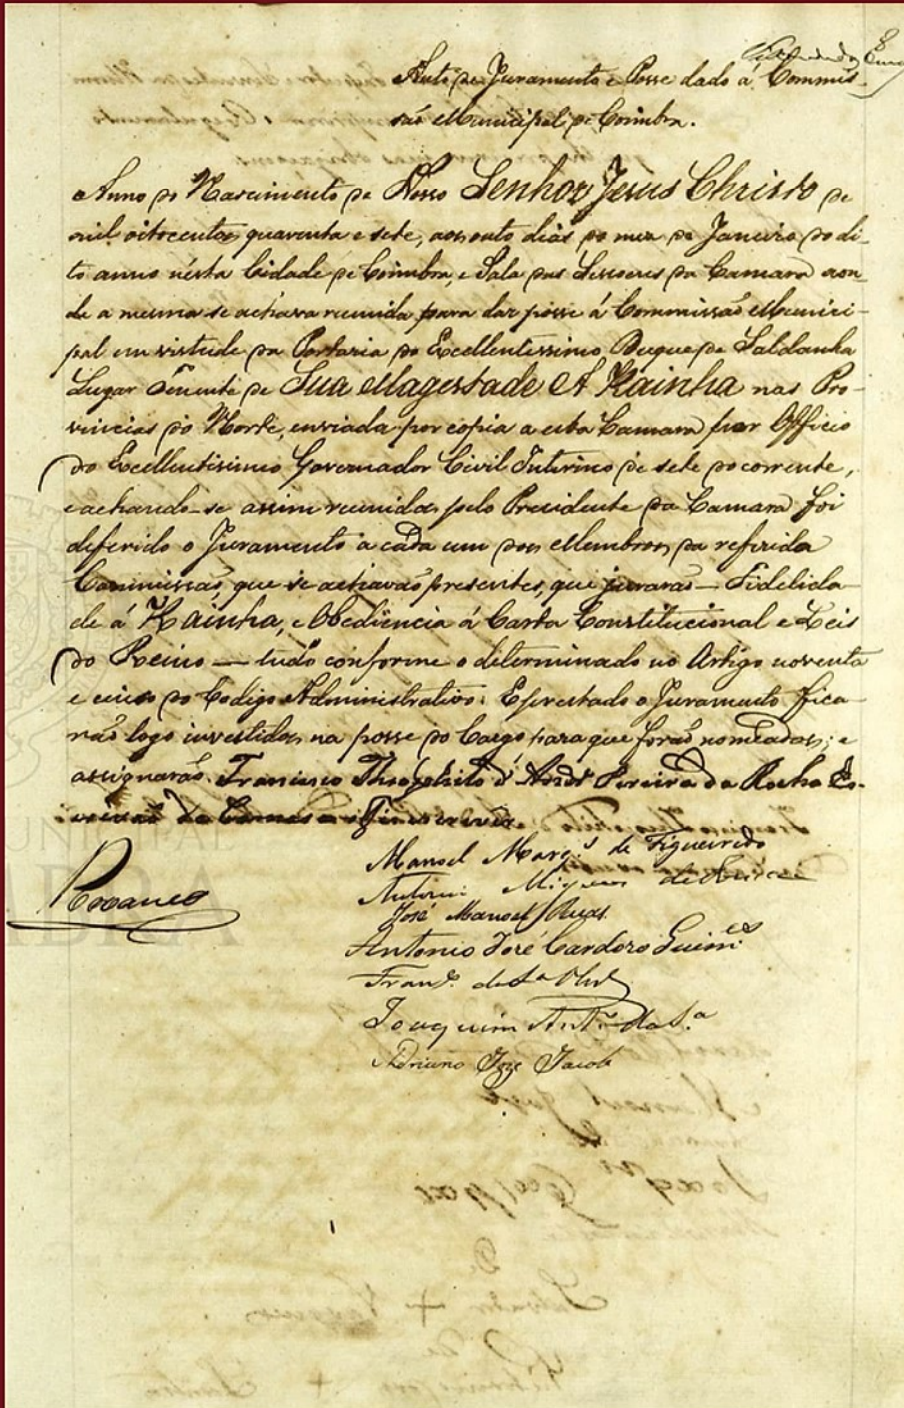 Auto de Juramento e Posse dado á Commis-
são Municipal de Coimbra.
Anno do Nascimento de Nosso Senhor Jesus Christo de
mil oitocentos quarenta e sete, aos outo dias do mez de Janeiro do di-
to anno nésta Cidade de Coimbra, e Sala das Sessoens da Camara aon-
de a mesma se achava reunida para dar posse á Commissão Munici-
pal em virtude da Portaria do Excellentissimo Duque de Saldanha
Lugar Tenente de Sua Magestade A Rainha nas Pro-
vincias do Norte, enviada por copia a esta Camara por Officio
do Excellentissimo Governador Civil Interino de sete do corrente,
e achando-se assim reunidos pelo Presidente da Camara foi
deferido o Juramento a cada um dos Membros da referida
Commissão, que se achavão presentes, que jurarão — Fidelida
de á Rainha, e Obediencia á Carta Constitucional e Leis
do Reino — tudo conforme o determinado no Artigo noventa
e cinco do Codigo Administrativo: E prestado o Juramento fica
rão logo investidos na posse do Cargo para que forão nomeados; e
assignarão. Francisco Theophilo d' Andr Pereira da Rocha Es-
crivão da Camara
Manoel Marq.s de Figueiredo
Antonio de
José Manoel Ruas
Antonio José Cardozo Guim.es
Fran.co de
Joaquim Ant.o da S.a
Adriano Joze Jacob